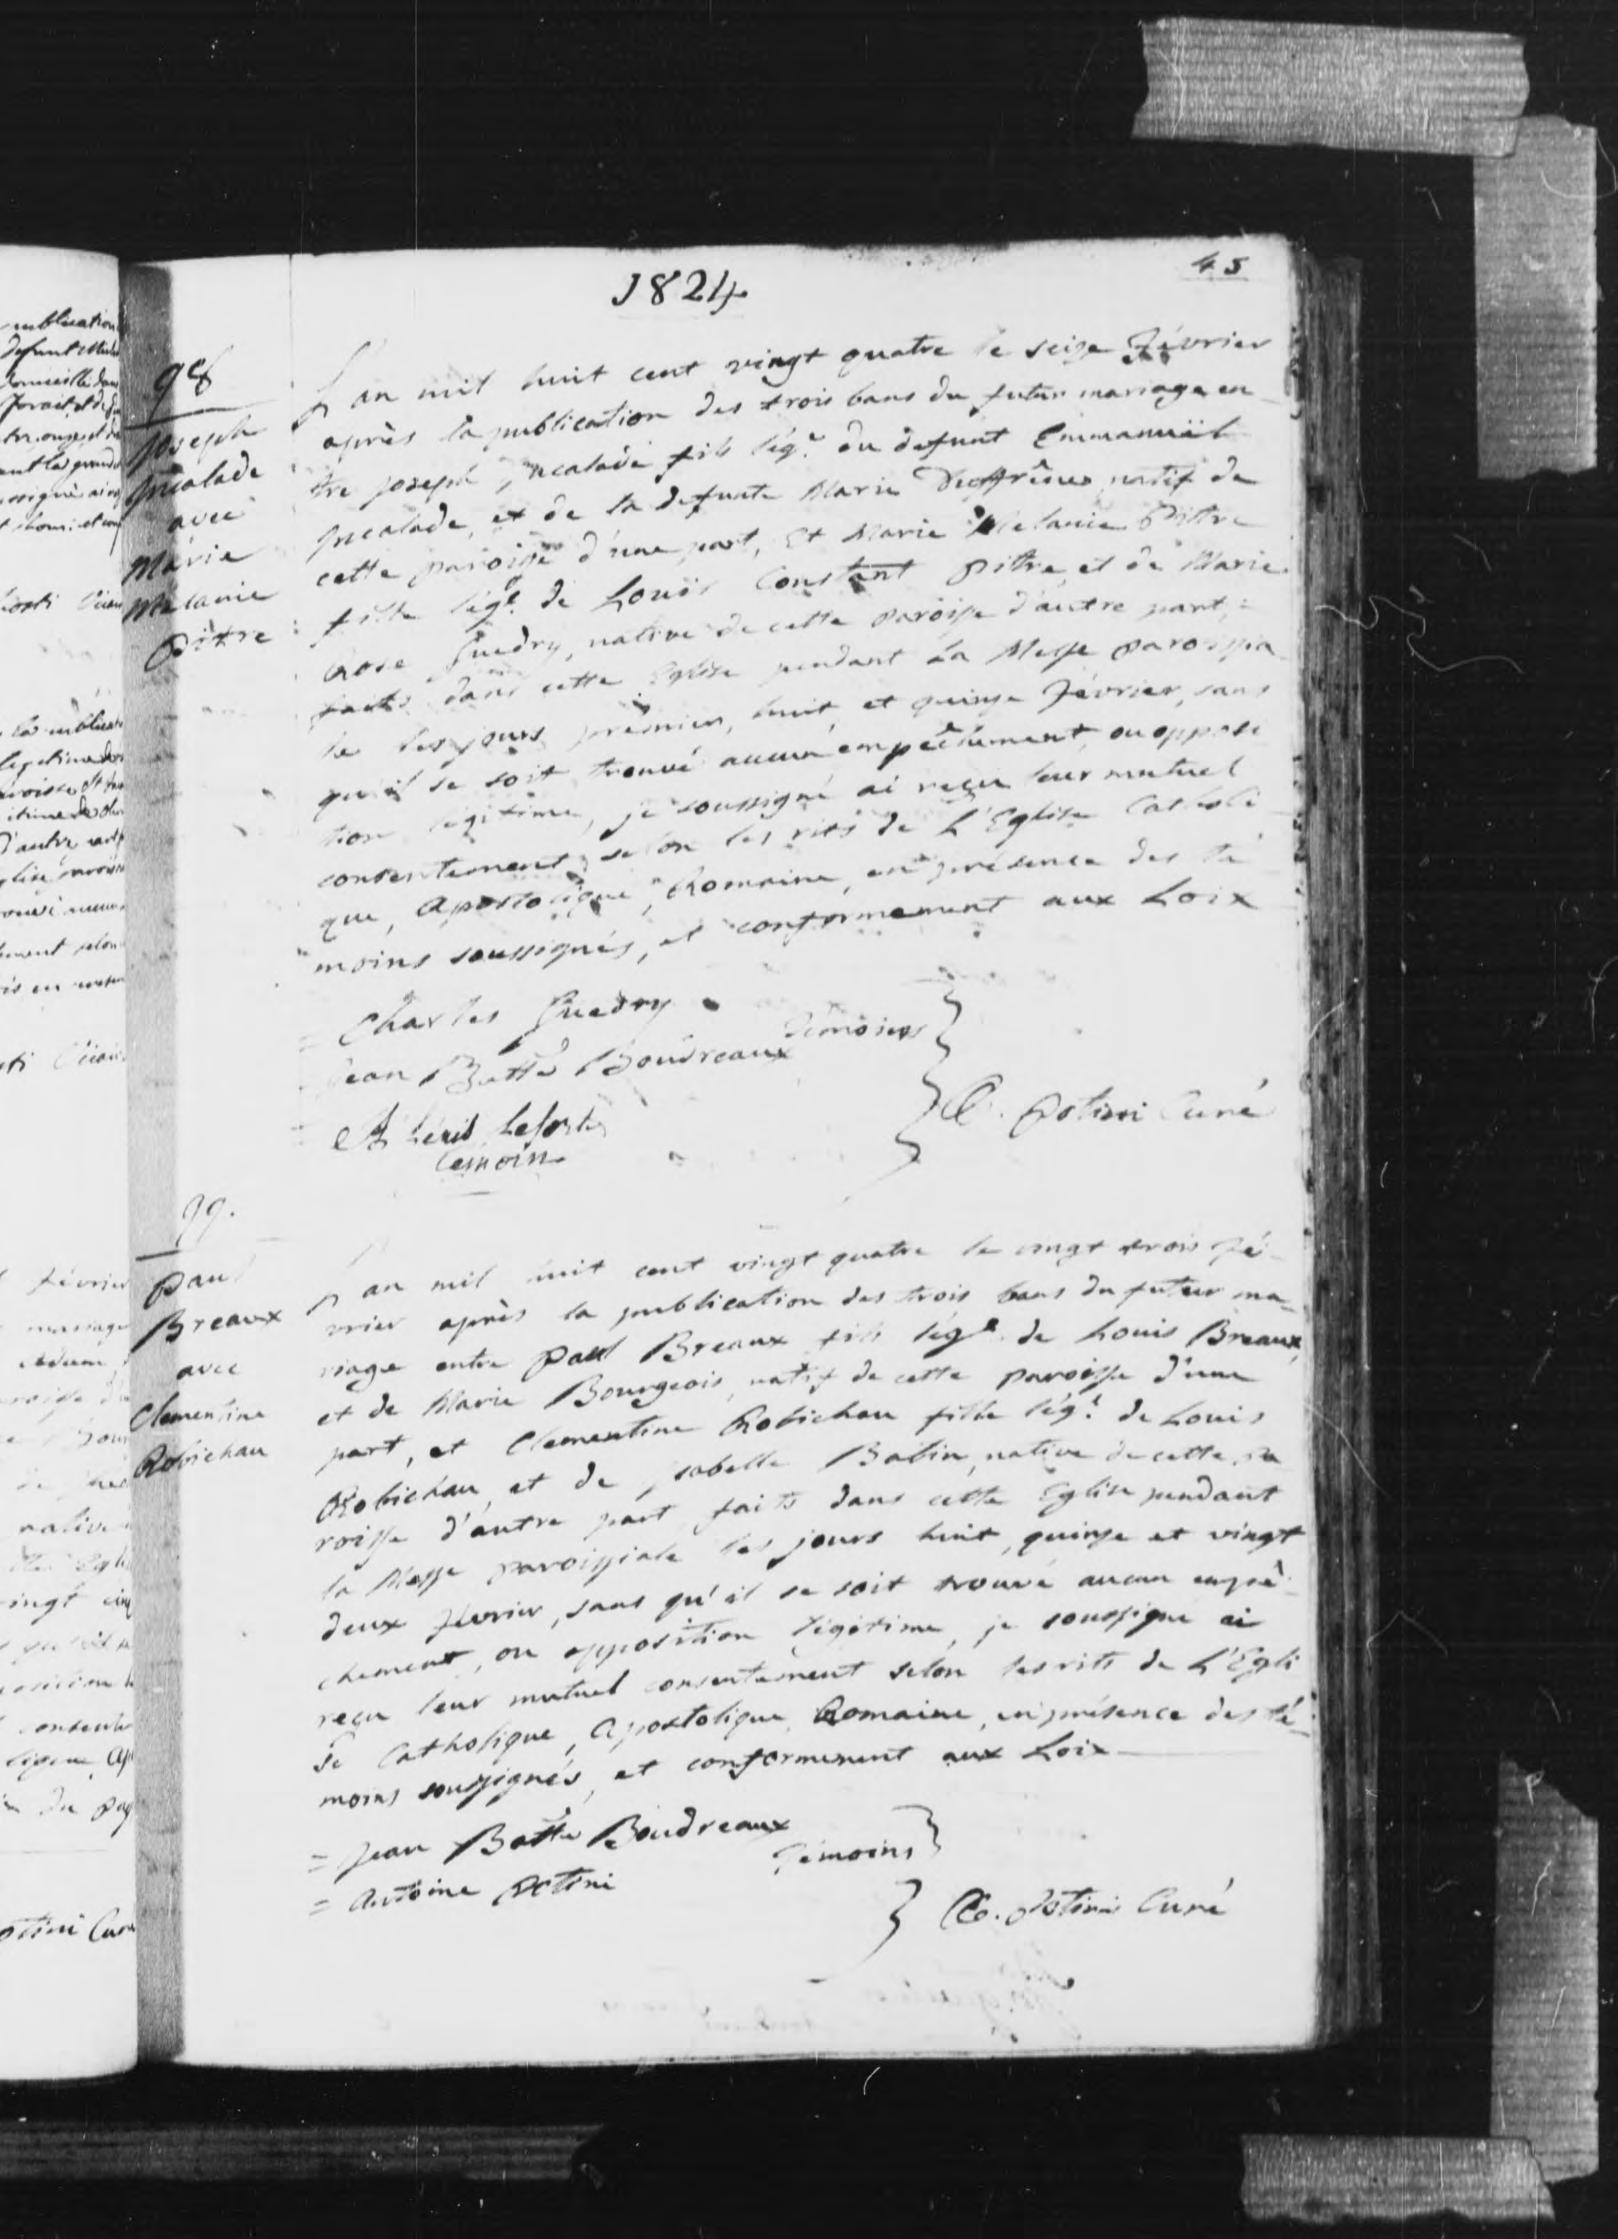 45
1824
98
Joseph
Incalade
avec
Marie
Melanie
Pitre
L'an mil huit cent vingt quatre le seize Février
après la publication des trois bans du futur mariage en-
tre Joseph Incalade fils lég.e du defunt Emmanuël
Incalade, et de la defunte Marie natif de
cette paroisse d'une part, Et Marie Melanie Pittre
fille lég.e de Louis Constant Pittre, et de Marie
Rose Guedry, native de cette paroisse d'autre part,
faits dans cette Eglise pendant La Messe paroissia-
le les jours premier, huit, et quinze Février, sans
qu'il se soit trouvé aucun empêchement, ou opposi-
tion légitime, je soussigné ai reçu leur mutuel
consentement selon les rits de L'Eglise Catholi-
que, Apostolique, Romaine, en présence des té-
moins soussignés, et conformement aux Loix
= Charles Guedry
Témoins
Jean Btte Boudreaux
Leforte
temoin
C. Potini Curé
99.
Paul
Breaux
avec
Clementine
Robichau
L'an mil huit cent vingt quatre le vingt trois Fé-
vrier après la publication des trois bans du futur ma-
riage entre Paul Breaux fils lég.e de Louis Breaux,
et de Marie Bourgeois, natif de cette paroisse d'une
part, et Clementine Robichau fille lég.e de Louis
Robichau, et de Isabelle Babin, native de cette pa
roisse d'autre part faits dans cette Eglise pendant
la Messe paroissiale les jours huit, quinze et vingt
deux Février, sans qu'il se soit trouvé aucun empê-
chement, ou opposition légitime, je soussigné ai
reçu leur mutuel consentement selon les rits de L'Egli
se Catholique, Apostolique, Romaine, en présence des té-
moins soussignés, et conformement aux Loix
= Jean Btte Boudreaux
Témoins
= Antoine Potini
C. Potini Curé